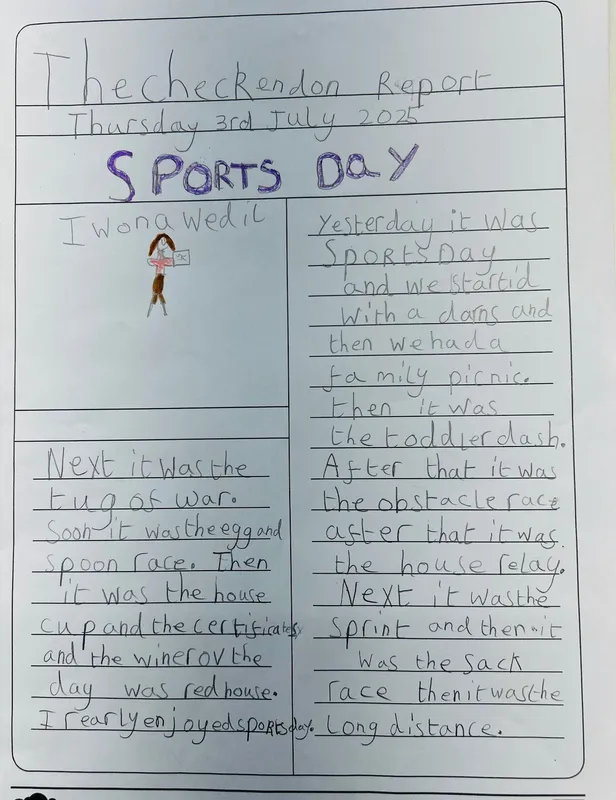 The checkendon Report
Thursday 3rd July 2025
SPORTS DAY
I won a wedil
Yesterday it was
SPORTS DAY
and we startid
with a dans and
then we had a
family picnic.
then it was
the toddler dash.
After that it was
the obstacle race
after that it was.
the house relay.
Next it was the
sprint and then it
was the sack
race then it was the
long distance.
Next it was the
tug of war.
Soon it was the egg and
spoon race. Then
it was the house
cup and the certificates
and the winer ov the
day was red house.
I rearly enjoyed sports day.